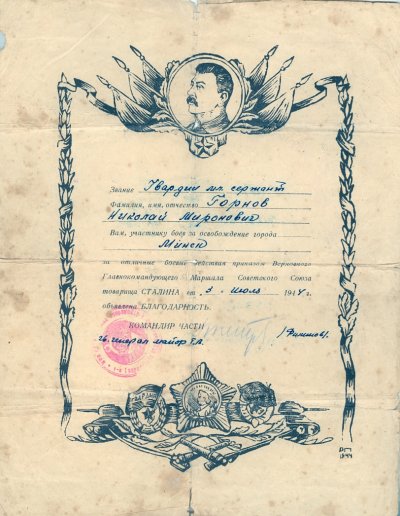 Звание Гвардии мл. сержант
Фамилия, имя, отчество Горнов
Николай Миронович
Вам, участнику боев за освобождение города
Минск
за отличные боевые действия приказом Верховного
Главнокомандующего Маршала Советского Союза
товарища СТАЛИНА от 3 июль 1944 г.
объявлена БЛАГОДАРНОСТЬ.
КОМАНДИР ЧАСТИ
Гв. генерал майор т.А.
1944